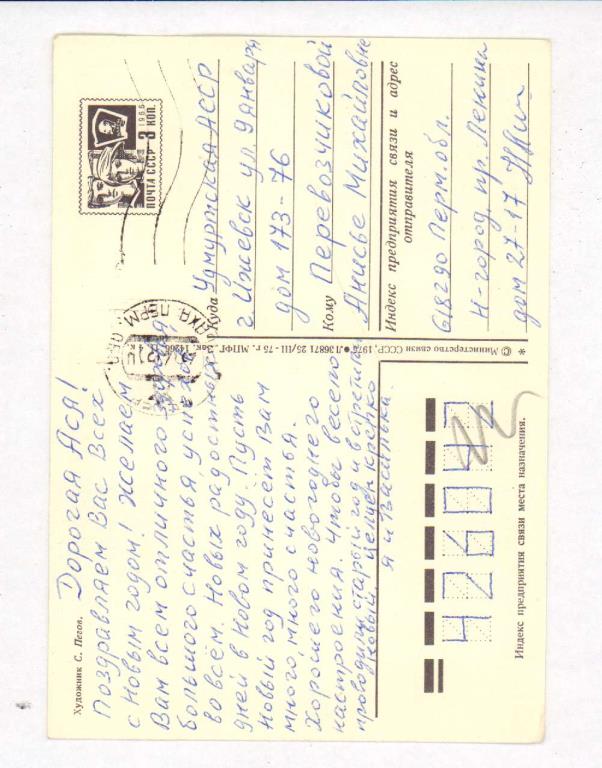 Художник С. Пегов.
Дорогая Ася!
Поздравляем Вас Всех
с Новым годом! Желаем
Вам всем отличного здоровья,
большого счастья, успехов
во всём. Новых радостных
дней в Новом году. Пусть
Новый год принесёт Вам
много, много счастья.
Хорошего новогоднего
настроения. Чтобы весело
проводить старый год и встретили
новый. Целуем крепко
я и Василька.
1966
3 КОП.
ПОЧТА СССР
ПЕРМ. ОБЛ.
Куда Удмуртская АССР
г Ижевск ул. 9 Января
дом 173-76
Кому Перевозчиковой
Анисье Михайловне
Индекс предприятия связи и адрес
отправителя
618290 Перм. обл.
Н-город пр. Ленина
дом 27-17
* © Министерство связи СССР, 1974 • Л36871 25/III - 75 г. МПФГ. Зак.
426042
Индекс предприятия связи места назначения.